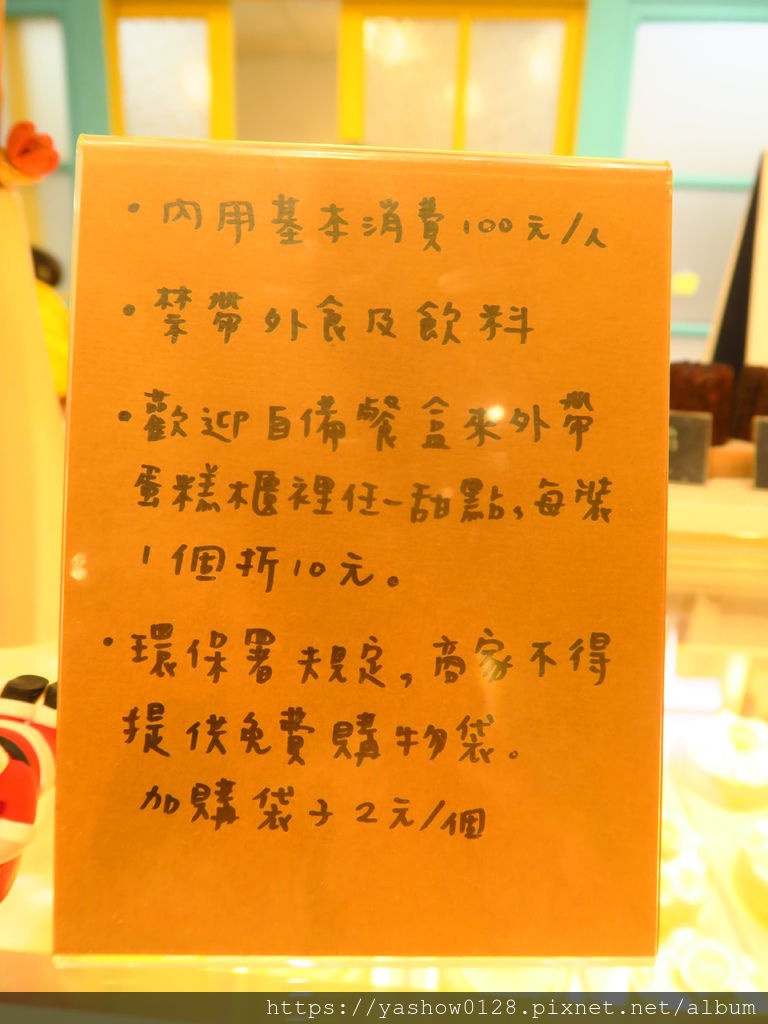 ·內用基本消費100元/人
·禁帶外食及飲料
·歡迎自備餐盒來外帶
蛋糕櫃裡任一甜點,每裝
1個折10元。
·環保署規定,商家不得
提供免費購物袋。
加購袋子2元/個
https://yashow0128.pixnet.net/album